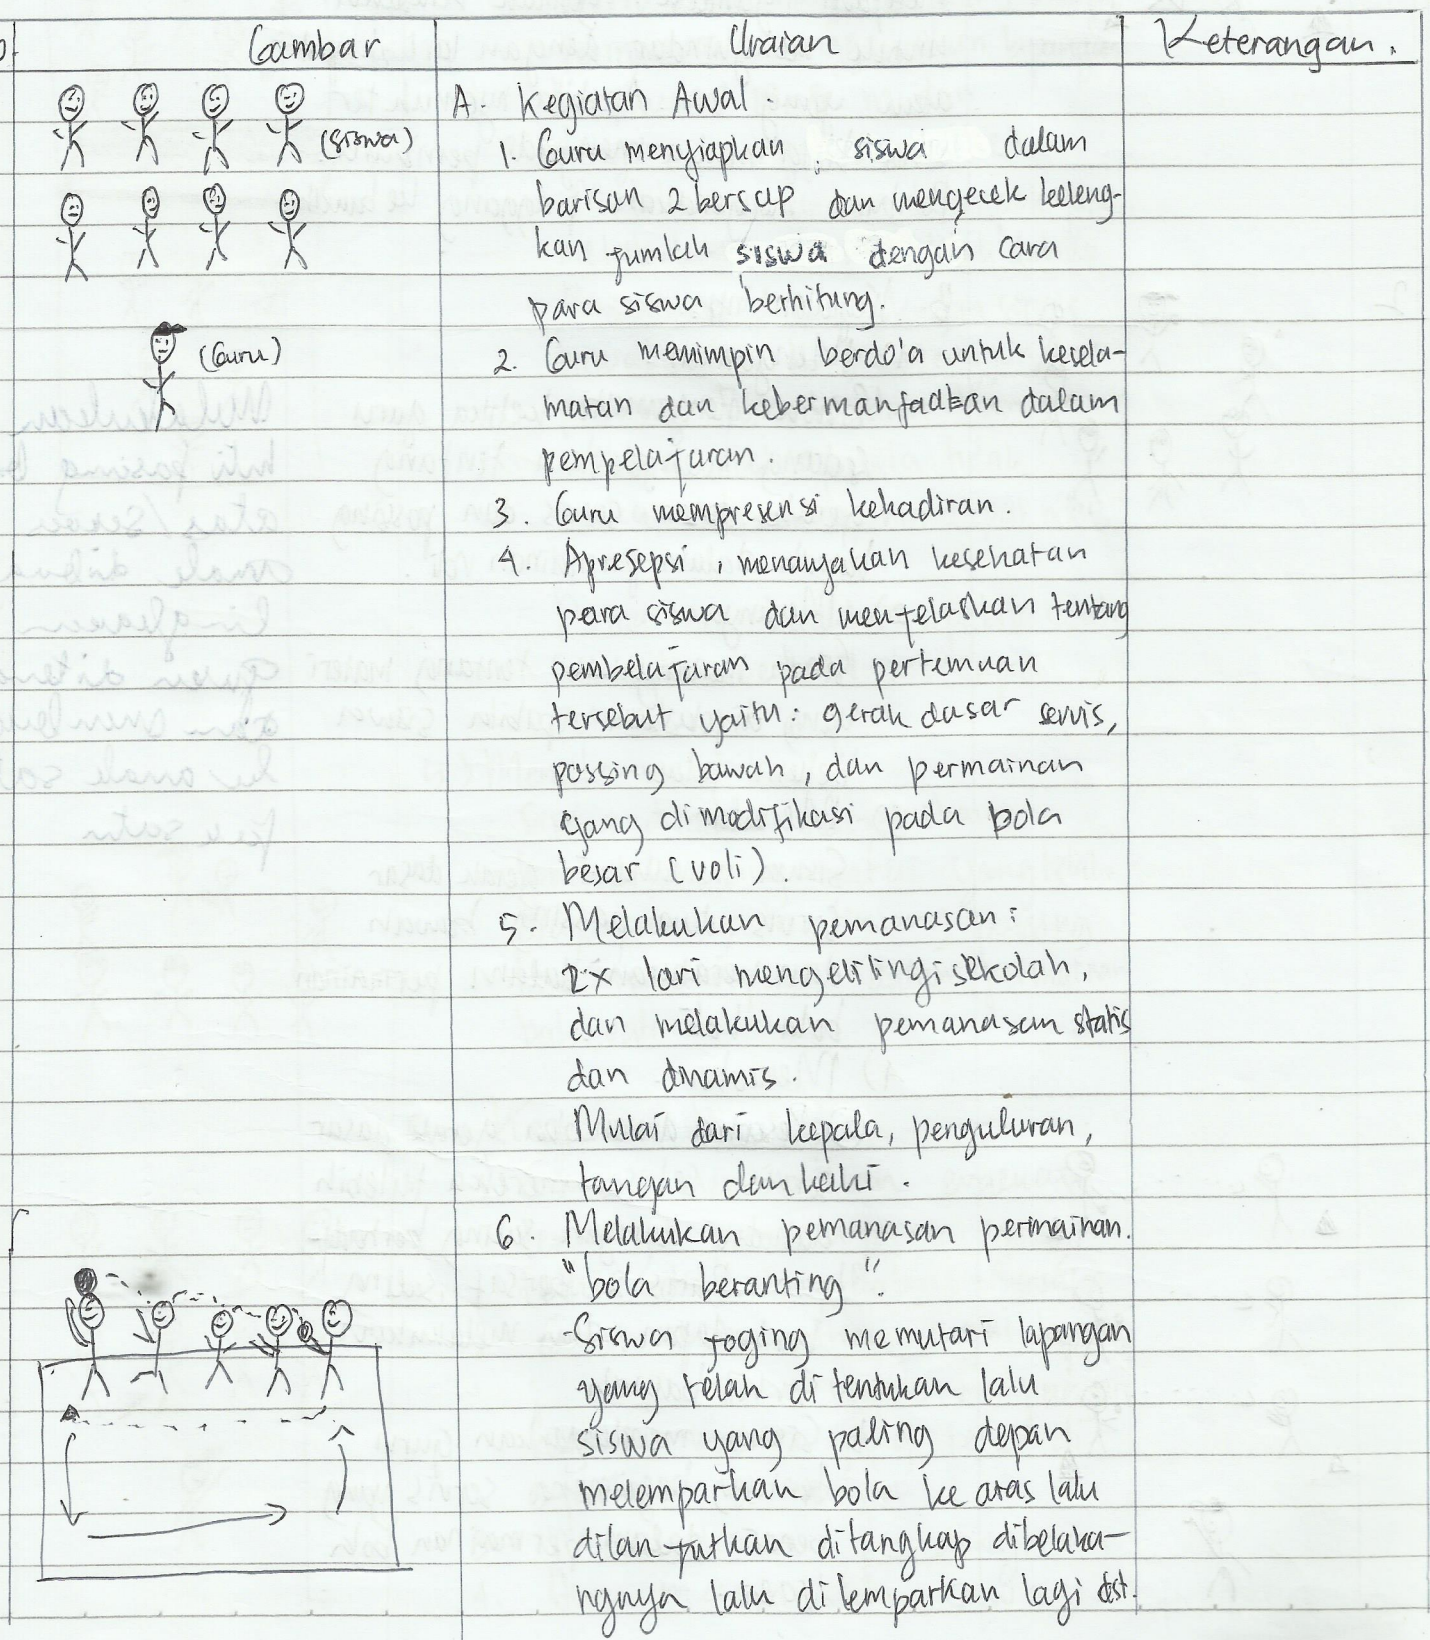 Gambar
Uraian
Keterangan.
(siswa)
(Guru)
A. Kegiatan Awal.
1. Guru menyiapkan siswa dalam
barisan 2 bersap dan mengecek keleng-
kan jumlah siswa dengan cara
para siswa berhitung.
2. Guru memimpin berdo'a untuk kesela-
matan dan kebermanfaatan dalam
pempelajaran.
3. Guru mempresensi kehadiran.
4. Apresepsi, menanyakan kesehatan
para siswa dan menjelaskan tentang
pembelajaran pada pertemuan
tersebut yaitu: gerak dasar servis,
passing bawah, dan permainan
yang dimodifikasi pada bola
besar (voli).
5. Melakukan pemanasan:
2x lari mengelilingi sekolah,
dan melakukan pemanasan statis
dan dinamis.
Mulai dari kepala, penguluran,
tangan dan kaki.
6. Melakukan pemanasan permainan.
"bola beranting".
-Siswa joging memutari lapangan
yang telah ditentukan lalu
siswa yang paling depan
melemparkan bola ke atas lalu
dilanjutkan ditangkap dibelaka-
ngnya lalu dilemparkan lagi dst.